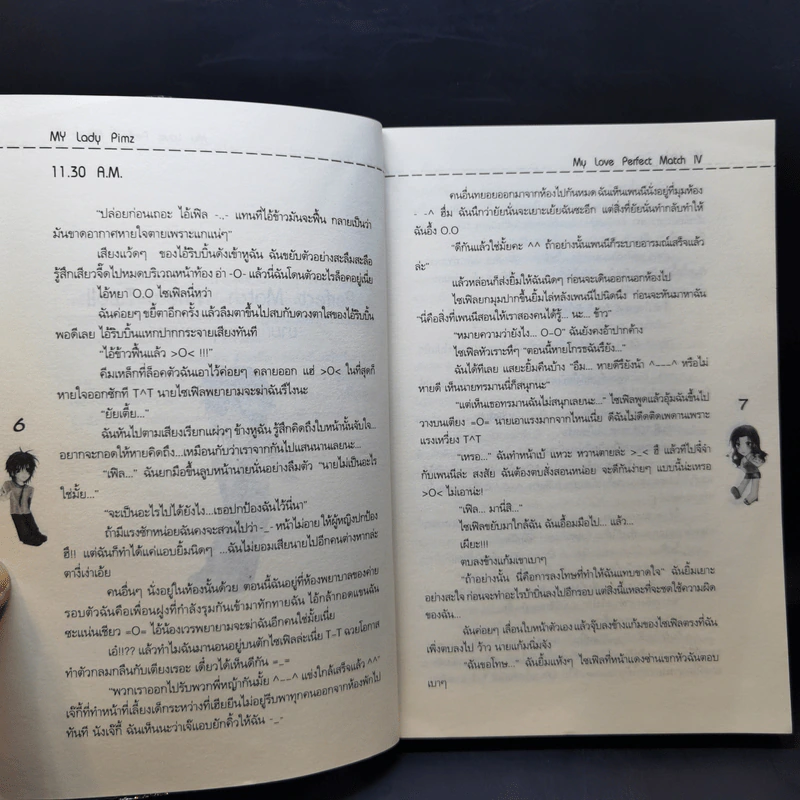 MY Lady Pimz
11.30 A.M.
"ปล่อยก่อนเถอะ ไอ้เฟิล -..- แทนที่ไอ้ข้าวมันจะฟื้น กลายเป็นว่า
มันขาดอากาศหายใจตายเพราะแกแน่ๆ"
เสียงแว้ดๆ ของไอ้ริบบิ้นดังเข้าหูฉัน ฉันขยับตัวอย่างสะลึมสะลือ
รู้สึกเสียวจี๊ดไปหมดบริเวณหน้าท้อง อ่า -O- แล้วนี่ฉันโดนตัวอะไรล็อคอยู่เนี่ย
ไอ้หยา O.O ไซเฟิลนี่หว่า
ฉันค่อยๆ ขยี้ตาอีกครั้ง แล้วลืมตาขึ้นไปสบกับดวงตาใสของไอ้ริบบิ้น
พอดีเลย ไอ้ริบบิ้นแหกปากกระจายเสียงทันที
"ไอ้ข้าวฟื้นแล้ว >O< !!!"
คีมเหล็กที่ล็อคตัวฉันเอาไว้ค่อยๆ คลายออก แฮ่ >O< ในที่สุดก็
หายใจออกซักที T^T นายไซเฟิลพยายามจะฆ่าฉันรึไงนะ
"ยัยเตี้ย..."
ฉันหันไปตามเสียงเรียกแผ่วๆ ข้างหูฉัน รู้สึกคิดถึงใบหน้านั้นจับใจ...
อยากจะกอดให้หายคิดถึง...เหมือนกับว่าเราจากกันไปแสนนานเลยนะ...
"เฟิล..." ฉันยกมือขึ้นลูบหน้านายนั่นอย่างลืมตัว "นายไม่เป็นอะไร
ใช่มั้ย..."
"จะเป็นอะไรไปได้ยังไง...เธอปกป้องฉันไว้นี่นา"
ถ้ามีแรงซักหน่อยฉันคงจะสวนไปว่า -_- หน้าไม่อาย ให้ผู้หญิงปกป้อง
ฮึ!! แต่ฉันก็ทำได้แค่แอบยิ้มนิดๆ ...ฉันไม่ยอมเสียนายไปอีกคนต่างหากล่ะ
ตางี่เง่าเอ้ย
คนอื่นๆ นั่งอยู่ในห้องนั้นด้วย ตอนนี้ฉันอยู่ที่ห้องพยาบาลของค่าย
รอบตัวฉันคือเพื่อนฝูงที่กำลังรุมกันเข้ามาทักทายฉัน ไอ้กล้ากอดแขนฉัน
ซะแน่นเชียว =O= ไอ้น้องเวรพยายามจะฆ่าฉันอีกคนใช่มั้ยเนี่ย
เอ๋!!?? แล้วทำไมฉันมานอนอยู่บนตักไซเฟิลล่ะเนี่ย T-T ฉวยโอกาส
ทำตัวกลมกลืนกับเตียงเรอะ เดี๋ยวได้เห็นดีกัน =_=
"พวกเราออกไปรับพวกพี่หญ้ากันมั้ย ^__^ แข่งใกล้เสร็จแล้ว ^^"
เจ๊กี้ที่ทำหน้าที่เลี้ยงเด็กระหว่างที่เฮียยีนไม่อยู่รีบพาทุกคนออกจากห้องพักไป
ทันที นังเจ๊กี้ ฉันเห็นนะว่าเจ๊แอบยักคิ้วให้ฉัน -_-
6
My Love Perfect Match IV
คนอื่นทยอยออกมาจากห้องไปกันหมด ฉันเห็นเพนนีนั่งอยู่ที่มุมห้อง
- -^ ฮึ่ม ฉันนึกว่ายัยนั่นจะเยาะเย้ยฉันซะอีก แต่สิ่งที่ยัยนั่นทำกลับทำให้
ฉันอึ้ง O.O
"ดีกันแล้วใช่มั้ยคะ ^^ ถ้าอย่างนั้นเพนนีก็ระบายอารมณ์เสร็จแล้ว
ล่ะ"
แล้วหล่อนก็ส่งยิ้มให้ฉันนิดๆ ก่อนจะเดินออกนอกห้องไป
ไซเฟิลยกมุมปากขึ้นยิ้มไล่หลังเพนนีไปนิดนึง ก่อนจะหันมาหาฉัน
"นี่คือสิ่งที่เพนนีสอนให้เราสองคนได้รู้... นะ... ข้าว"
"หมายความว่ายังไง... O-O" ฉันยังคงอ้าปากค้าง
ไซเฟิลหัวเราะหึๆ "ตอนนี้หายโกรธฉันรึยัง..."
ฉันได้ทีเลย แสยะยิ้มคืนบ้าง "อืม... หายดีรึยังน้า ^___^ หรือไม่
หายดี เห็นนายทรมานนี่ก็สนุกนะ"
"แต่เห็นเธอทรมานฉันไม่สนุกเลยนะ..." ไซเฟิลพูดแล้วอุ้มฉันขึ้นไป
วางบนเตียง =O= นายเอาแรงมากจากไหนเนี่ย ดีฉันไม่ติดติดเพดานเพราะ
แรงเหวี่ยง T^T
"เหรอ..." ฉันทำหน้าเบ้ แหวะ หวานตายล่ะ >_< ฮึ แล้วทีไปจี๋จ๋า
กับเพนนีล่ะ สงสัย ฉันต้องตบสั่งสอนหน่อย จะดีกันง่ายๆ แบบนี้น่ะเหรอ
>O< ไม่เอาน่ะ!
"เฟิล... มานี่สิ..."
ไซเฟิลขยับมาใกล้ฉัน ฉันเอื้อมมือไป... แล้ว...
เผียะ!!!
ตบลงข้างแก้มเขาเบาๆ
"ถ้าอย่างนั้น นี่คือการลงโทษที่ทำให้ฉันแทบขาดใจ" ฉันยิ้มเยาะ
อย่างสะใจ ก่อนจะทำอะไรบ้าบิ่นลงไปอีกรอบ แต่สิ่งนี้แหละที่จะชดใช้ความผิด
ของฉัน...
ฉันค่อยๆ เลื่อนใบหน้าตัวเอง แล้วจุ๊บลงข้างแก้มของไซเฟิลตรงที่ฉัน
เพิ่งตบลงไป ว้าว นายแก้มนิ่มจัง
"ฉันขอโทษ..." ฉันยิ้มแห้งๆ ไซเฟิลที่หน้าแดงซ่านเขกหัวฉันตอบ
เบาๆ
7